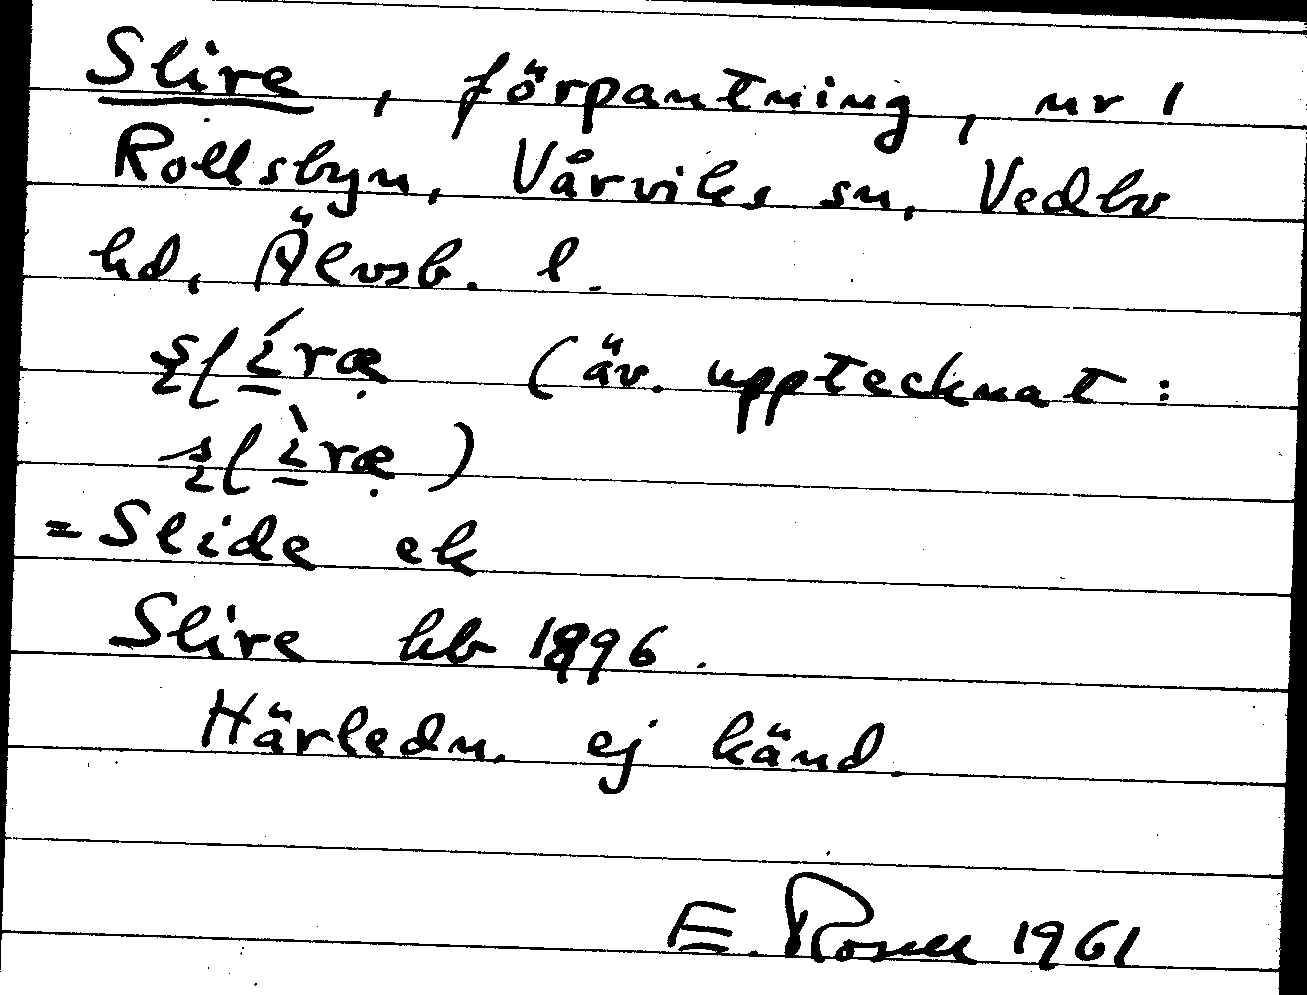 Slire, förpantning, nr 1
Rollsbyn, Vårviks sn, Vedbo
hd, Älvsb. l.
(äv. upptecknat:
= Slide ek
Slire kb 1896.
Härledn. ej känd.
E. Rosell 1961